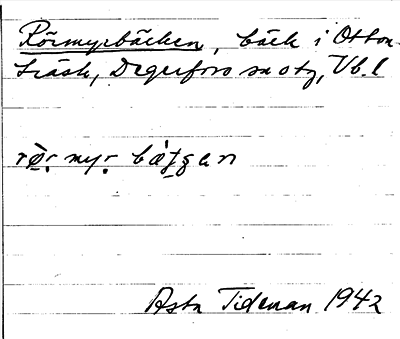 Rörmyrbäcken, bäck i Otton-
träsk, Degerfors sn o tg, Vb. l
Asta Tideman 1942